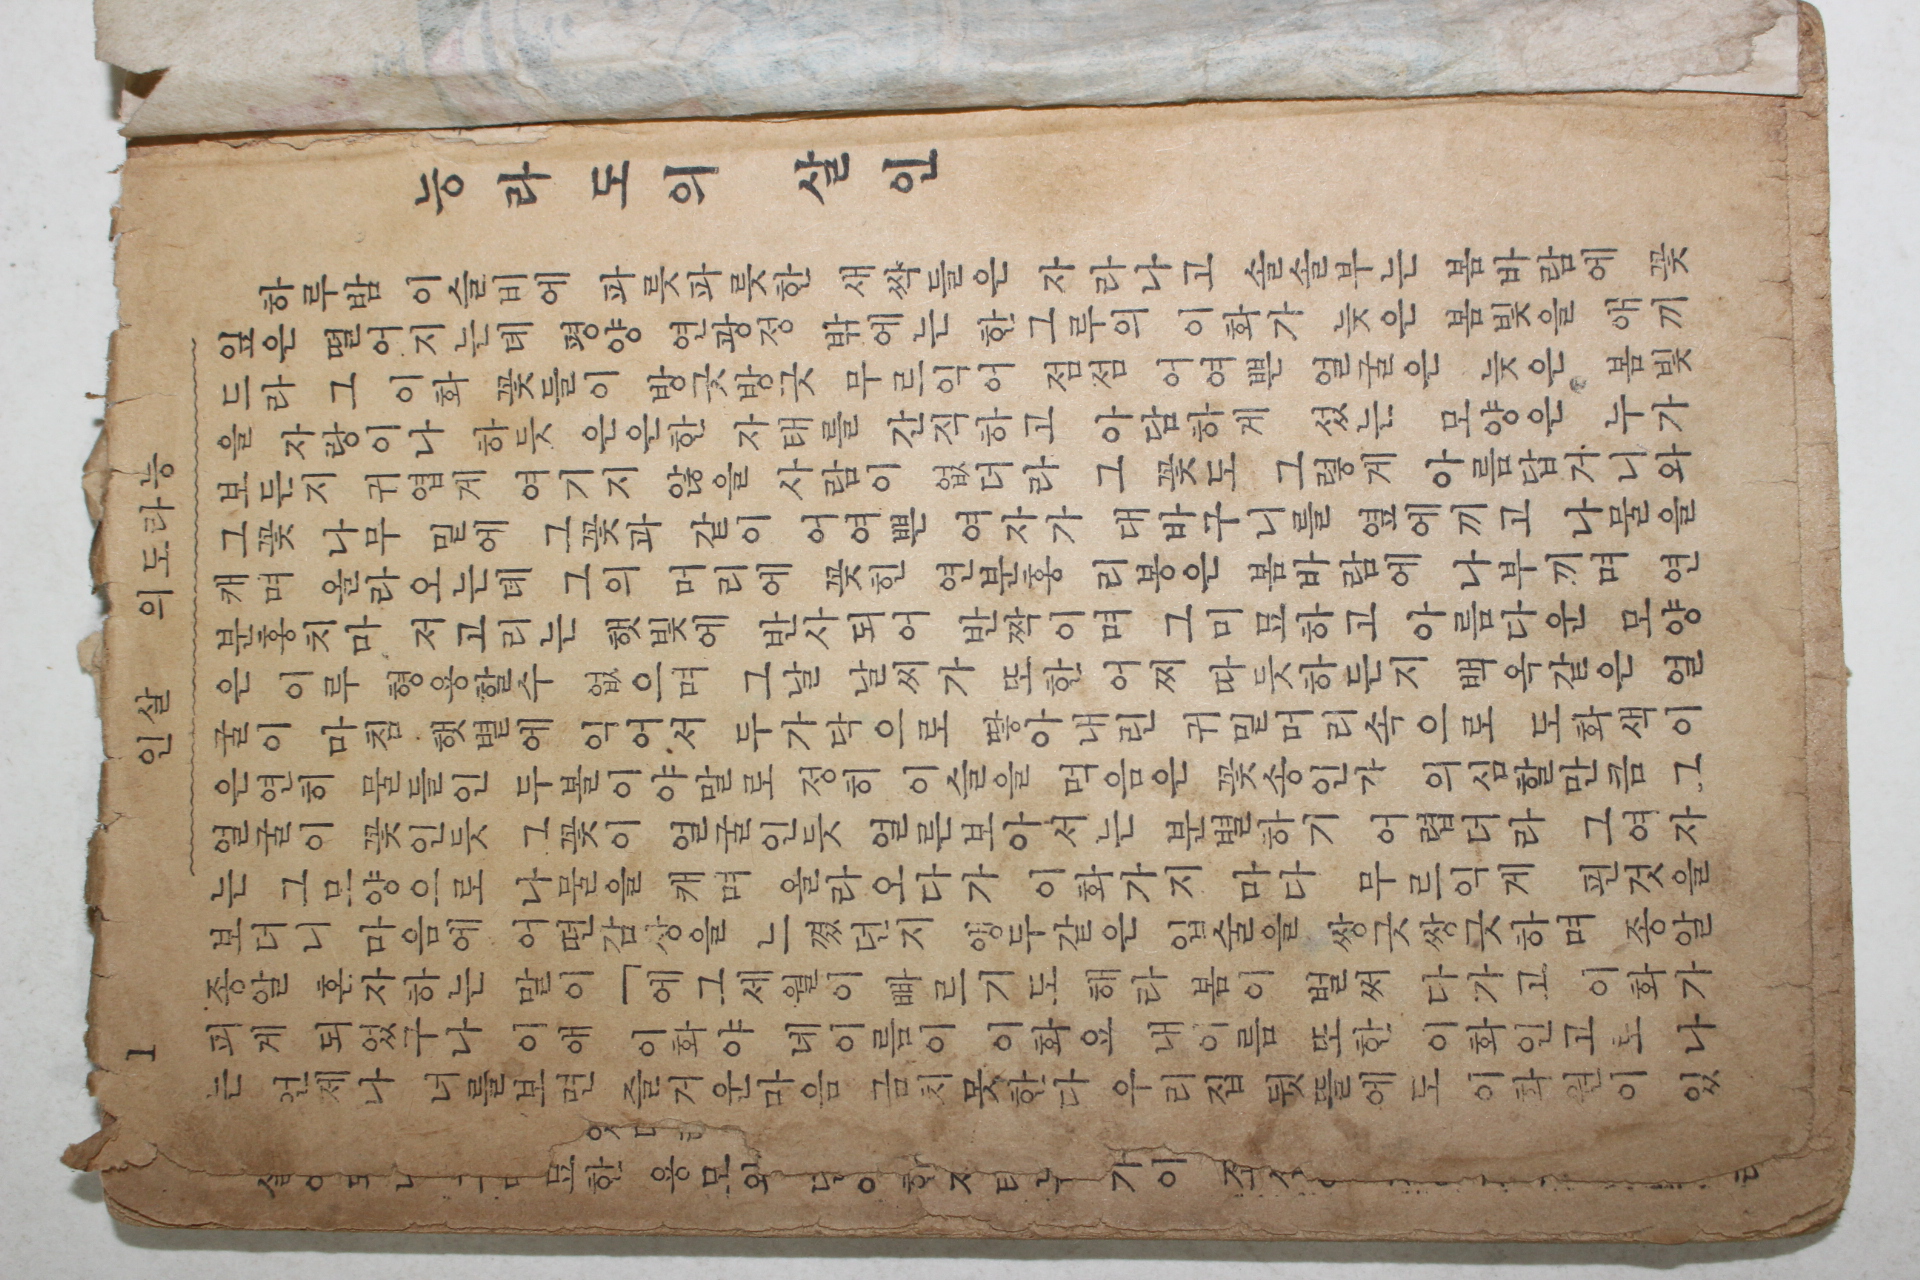 1
인살 의도라능
능라도의 살인
하루밤 이슬비에 파릇파릇한 새싹들은 자라나고 솔솔부는 봄바람에 꽃
잎은 떨어지는데 평양 연광정 밖에는 한그루의 이화가 늦은 봄빛을 애끼
드라 그 이화 꽃들이 방긋방긋 무르익어 점점 어여쁜 얼굴은 늦은 봄빛
을 자랑이나 하듯 은은한 자태를 간직하고 아담하게 섰는 모양은 누가
보든지 귀엽게 여기지 않을 사람이 없더라 그 꽃도 그렇게 아름답거니와
그꽃 나무 밑에 그꽃과 같이 어여쁜 여자가 대바구니를 옆에끼고 나물을
캐며 올라오는데 그의 머리에 꽂힌 연분홍 리봉은 봄바람에 나부끼며 연
분홍치마 저고리는 햇빛에 반사되어 반짝이며 그미묘하고 아름다운 모양
은 이루 형용할수 없으며 그날 날씨가 또한 어찌 따듯하든지 백옥같은 얼
굴이 마침 햇볕에 익어서 두가닥으로 땋아내린 귀밑머리속으로 도화색이
은연히 물들인 두볼이야말로 정히 이슬을 먹음은 꽃송인가 의심할만큼 그
얼굴이 꽃인듯 그꽃이 얼굴인듯 얼른보아서는 분별하기 어렵더라 그여자
는 그모양으로 나물을 캐며 올라오다가 이화가지 마다 무르익게 핀것을
보더니 마음에 어떤감상을 느꼈던지 앵두같은 입술을 쌍긋쌍긋하며 종알
종알 혼자하는 말이 「에그세월이 빠르기도 해라 봄이 벌써 다가고 이화가
피게 되었구나 이애 이화야 네이름이 이화요 내이름 또한 이화인고로 나
는 언제나 너를보면 즐거운마음 금치못한다 우리집 뒷뜰에도 이화원이 있
묘한 용모와 가이